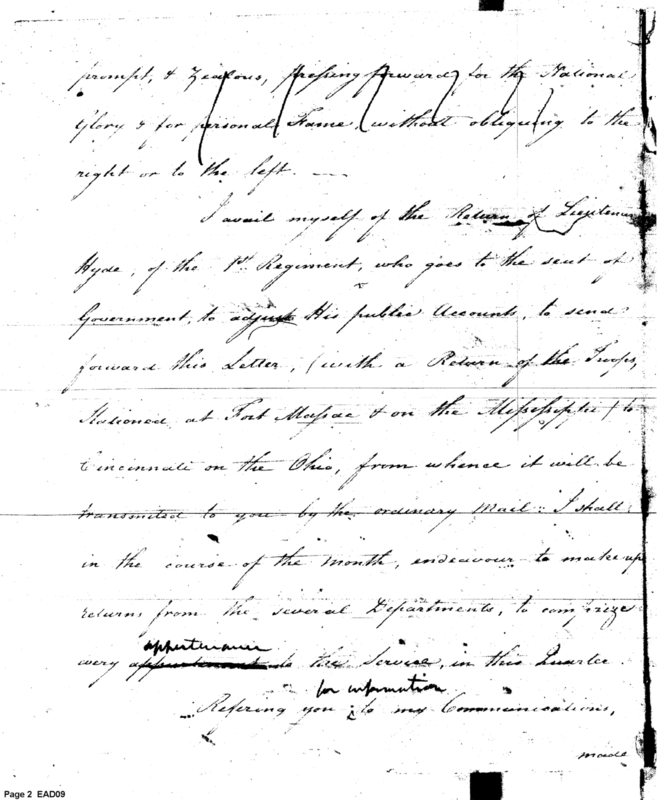 prompt, & Zealous, pressing forward for the National
Glory & for personal Fame, without obliquing to the
right or to the left. —
I avail myself of the Return of Lieutenant
Hyde, of the 1st Regiment, who goes to the seat of
Government, to adjust His public Accounts, to send
forward this Letter, (with a Return of the Troops,
Stationed at Fort Massac & on the Mississippi) to
Cincinnati on the Ohio, from whence it will be
transmited to you by the ordinary Mail: I shall
in the course of the Month, endeavour to make up
returns from the several Departments, to comprize
every appertenance to the Service, in this Quarter.
Refering you for information to my Communications,
made
Page 2 EAD09